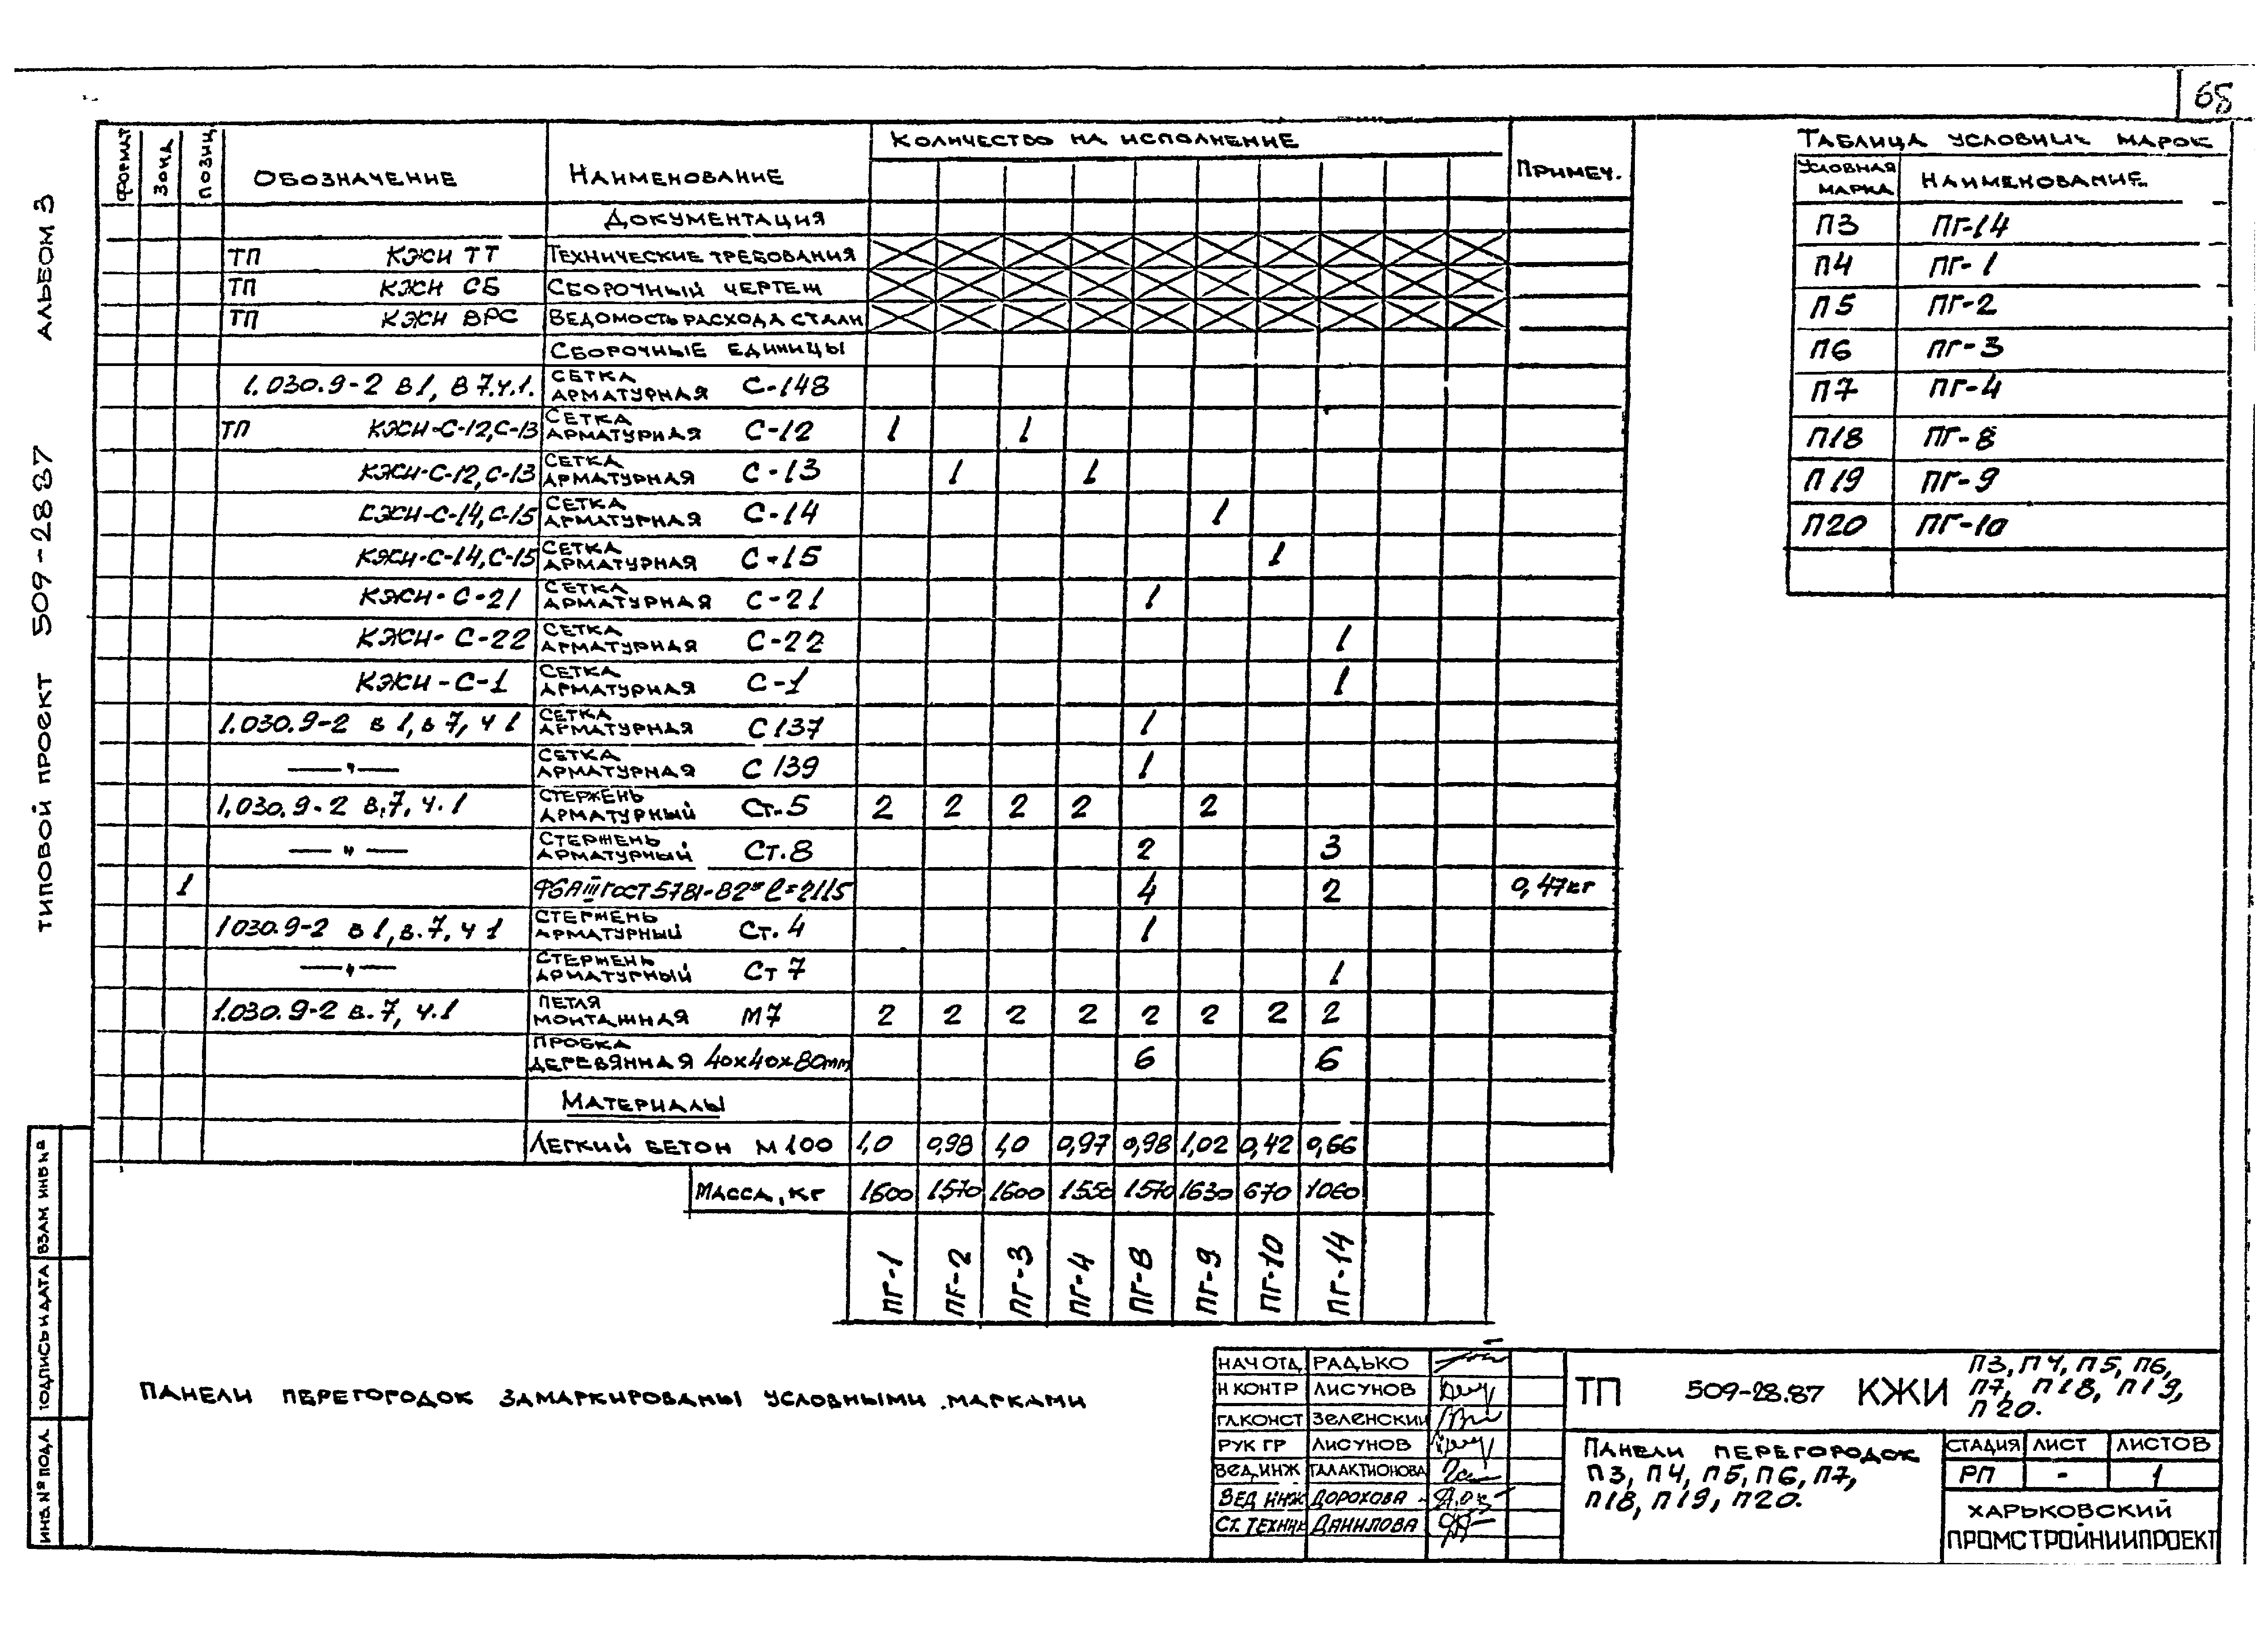 68
АЛЬБОМ 3
ТИПОВОЙ ПРОЕКТ 509-28 87
ФОРМАТ ЗОНА ПОЗИЦ. ОБОЗНАЧЕНИЕ НАИМЕНОВАНИЕ КОЛИЧЕСТВО НА ИСПОЛНЕНИЕ ПРИМЕЧ.
ДОКУМЕНТАЦИЯ
ТП КЖИ ТТ ТЕХНИЧЕСКИЕ ТРЕБОВАНИЯ
ТП КЖИ СБ СБОРОЧНЫЙ ЧЕРТЕЖ
ТП КЖИ ВРС ВЕДОМОСТЬ РАСХОДА СТАЛИ
СБОРОЧНЫЕ ЕДИНИЦЫ
1.030.9-2 в1, в7.ч.1. СЕТКА АРМАТУРНАЯ С-148
ТП КЖИ-С-12,С-13 СЕТКА АРМАТУРНАЯ С-12 1 1
КЖИ-С-12,С-13 СЕТКА АРМАТУРНАЯ С-13 1 1
КЖИ-С-14,С-15 СЕТКА АРМАТУРНАЯ С-14 1
КЖИ-С-14,С-15 СЕТКА АРМАТУРНАЯ С-15 1
КЖИ-С-21 СЕТКА АРМАТУРНАЯ С-21 1
КЖИ-С-22 СЕТКА АРМАТУРНАЯ С-22 1
КЖИ-С-1 СЕТКА АРМАТУРНАЯ С-1 1
1.030.9-2 в 1, в 7, ч 1 СЕТКА АРМАТУРНАЯ С 137 1
—"— СЕТКА АРМАТУРНАЯ С 139 1
1.030.9-2 в.7, ч.1 СТЕРЖЕНЬ АРМАТУРНЫЙ Ст.5 2 2 2 2 2
—"— СТЕРЖЕНЬ АРМАТУРНЫЙ Ст.8 2 3
1 Ф6АIII ГОСТ 5781-82* ℓ=2115 4 2 0,47кг
1030.9-2 в 1, в.7, ч 1 СТЕРЖЕНЬ АРМАТУРНЫЙ Ст.4 1
—"— СТЕРЖЕНЬ АРМАТУРНЫЙ Ст 7 1
1.030.9-2 в.7, ч.1 ПЕТЛЯ МОНТАЖНАЯ М7 2 2 2 2 2 2 2 2
ПРОБКА ДЕРЕВЯННАЯ 40х40х80mm 6 6
МАТЕРИАЛЫ
ЛЕГКИЙ БЕТОН М 100 1,0 0,98 1,0 0,97 0,98 1,02 0,42 0,66
МАССА, КГ 1600 1570 1600 1550 1570 1630 670 1060
ПГ-1 ПГ-2 ПГ-3 ПГ-4 ПГ-8 ПГ-9 ПГ-10 ПГ-14
ТАБЛИЦА УСЛОВНЫХ МАРОК
УСЛОВНАЯ МАРКА НАИМЕНОВАНИЕ
П3 ПГ-14
П4 ПГ-1
П5 ПГ-2
П6 ПГ-3
П7 ПГ-4
П18 ПГ-8
П19 ПГ-9
П20 ПГ-10
ПАНЕЛИ ПЕРЕГОРОДОК ЗАМАРКИРОВАНЫ УСЛОВНЫМИ МАРКАМИ
ИНВ.№ ПОДЛ. ПОДПИСЬ И ДАТА ВЗАМ ИНВ №
НАЧ ОТД РАДЬКО
Н КОНТР ЛИСУНОВ
ГЛ.КОНСТ ЗЕЛЕНСКИЙ
РУК ГР ЛИСУНОВ
ВЕД.ИНЖ ГАЛАКТИОНОВА
ВЕД ИНЖ ДОРОХОВА
СТ. ТЕХНИК ДАНИЛОВА
ТП 509-28.87 КЖИ П3, П4, П5, П6,
П7, П18, П19,
П20.
ПАНЕЛИ ПЕРЕГОРОДОК
П3, П4, П5, П6, П7,
П18, П19, П20.
СТАДИЯ ЛИСТ ЛИСТОВ
РП - 1
ХАРЬКОВСКИЙ
ПРОМСТРОЙНИИПРОЕКТ